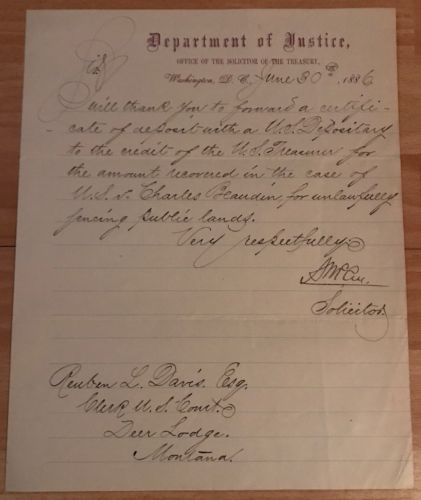 Department of Justice,
OFFICE OF THE SOLICITOR OF THE TREASURY,
Washington, D. C. June 30th, 1886
I will thank you to forward a certifi-
cate of deposit with a U.S. Depositary
to the credit of the U.S. Treasurer for
the amount recovered in the case of
U.S. v. Charles Beaudin, for unlawfully
fencing public lands.
Very respectfully
Solicitor.
Reuben L. Davis. Esq.
Clerk U.S. Court.
Deer Lodge.
Montana.